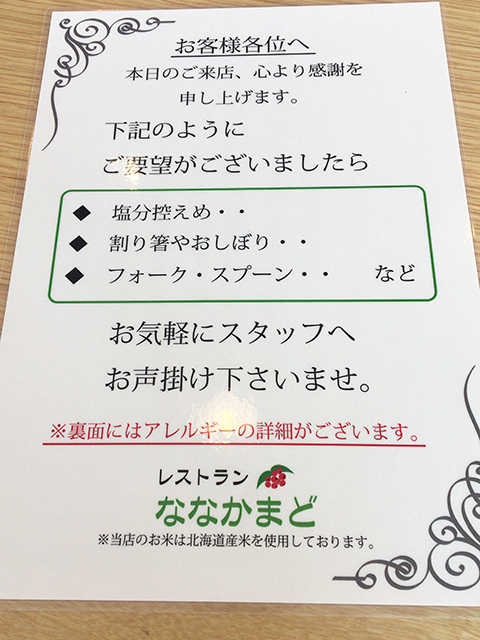 お客様各位へ
本日のご来店、心より感謝を
申し上げます。
下記のように
ご要望がございましたら
◆ 塩分控えめ・・
◆ 割り箸やおしぼり・・
◆ フォーク・スプーン・・ など
お気軽にスタッフへ
お声掛け下さいませ。
※裏面にはアレルギーの詳細がございます。
レストラン
ななかまど
※当店のお米は北海道産米を使用しております。